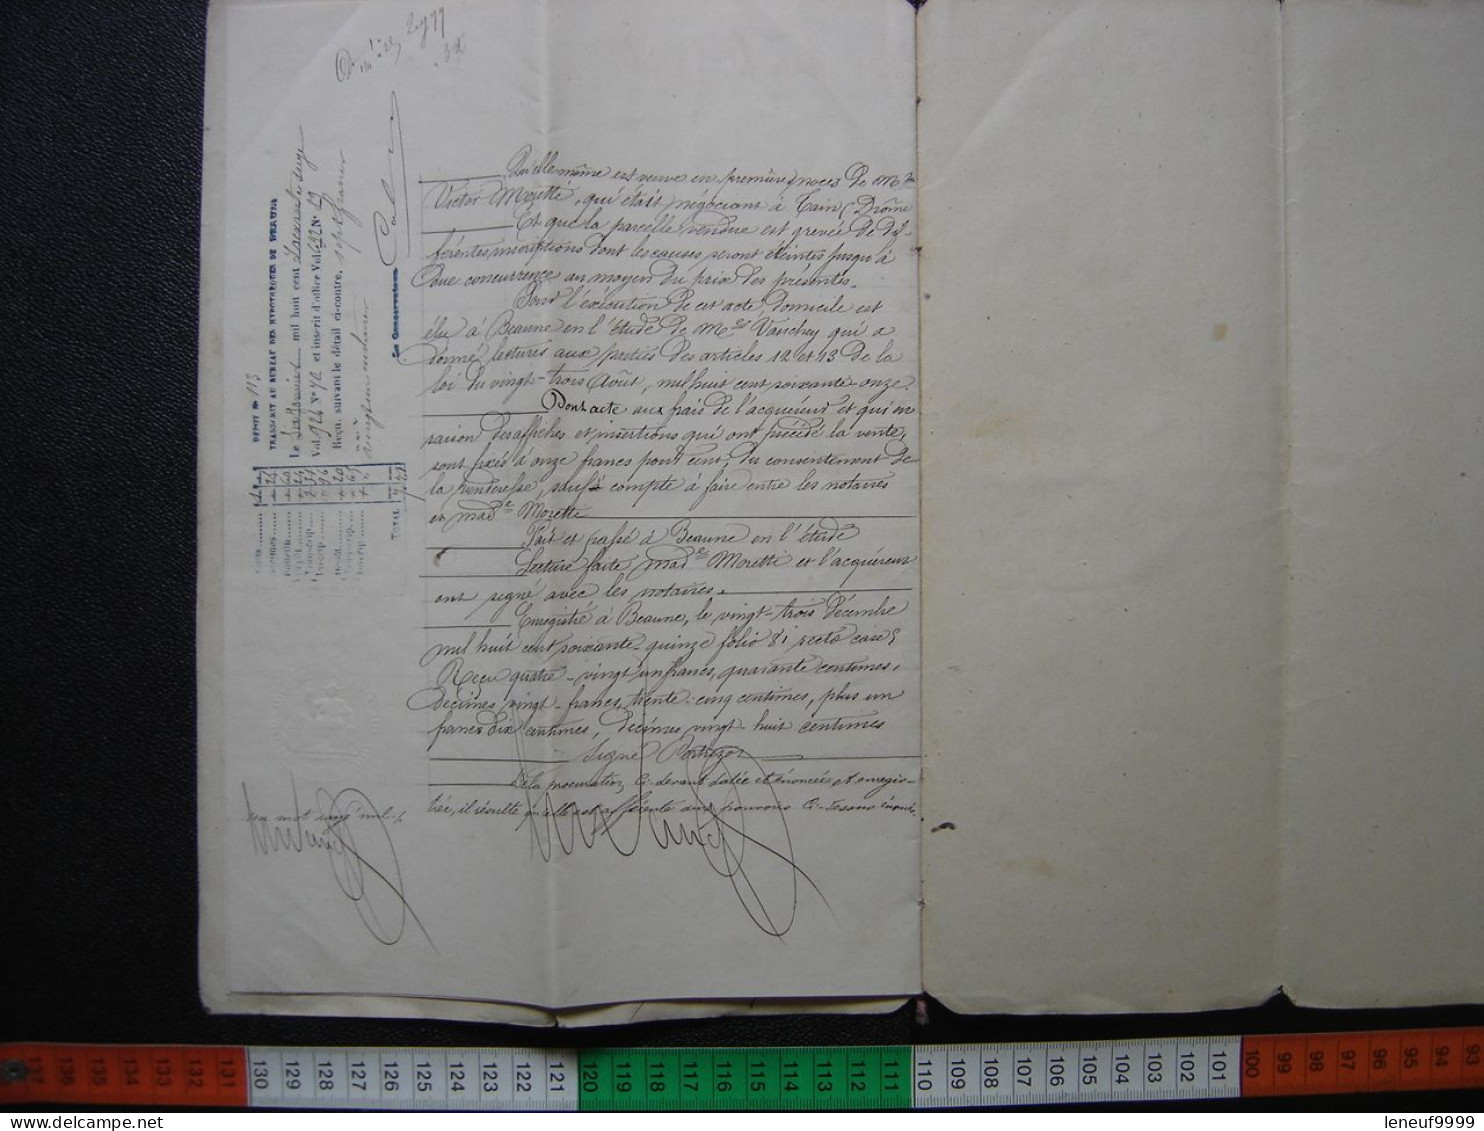 Qu'elle même est veuve en premières noces de Mr
Victor Moretti, qui était négociant à Tain (Drôme
Et que la parcelle vendue est grevée de dif-
férentes inscriptions dont les causes seront éteintes jusqu'à
due concurrence au moyen du prix des présentes.
Pour l'exécution de cet acte domicile est
élu à Beaune en l'étude de Me Vauchey qui a
donné lectures aux parties des articles 12 et 13 de la
loi du vingt-trois Août, mil huit cent soixante-onze.
Dont acte aux frais de l'acquéreur et qui en
raison des affiches et insertions qui ont précédé la vente,
sont fixés à onze francs pour cent, du consentement de
la venderesse, sauf à compte à faire entre les notaires
et made Moretti
Fait et passé à Beaune en l'étude
Lecture faite made Moretti et l'acquéreur
ont signé avec les notaires.
Enregistré à Beaune, le vingt-trois décembre
mil huit cent soixante-quinze folio 81 recto case 5
Reçu quatre-vingt un francs, quarante centimes,
décimes vingt-francs, trente-cinq centimes, plus un
franc dix centimes, décimes vingt-huit centimes
Signé
De la procuration ci-devant datée et énoncée et enregis-
trée, il résulte qu'elle est afférente aux pouvoirs ci-dessus énoncés.
un mot rayé nul
DÉPOT No 113
TRANSCRIT AU BUREAU DES HYPOTHÈQUES DE BEAUNE
Le mil huit cent soixante seize
Vol. 924 No 72 et inscrit d'office Vol. 692 No 19
Reçu, suivant le détail ci-contre, sept francs
vingt un centimes
Le Conservateur
TOTAL
137 136 135 134 133 132 131 130 129 128 127 126 125 124 123 122 121 120 119 118 117 116 115 114 113 112 111 110 109 108 107 106 105 104 103 102 101 100 99 98 97 96 95 94 93
leneuf9999